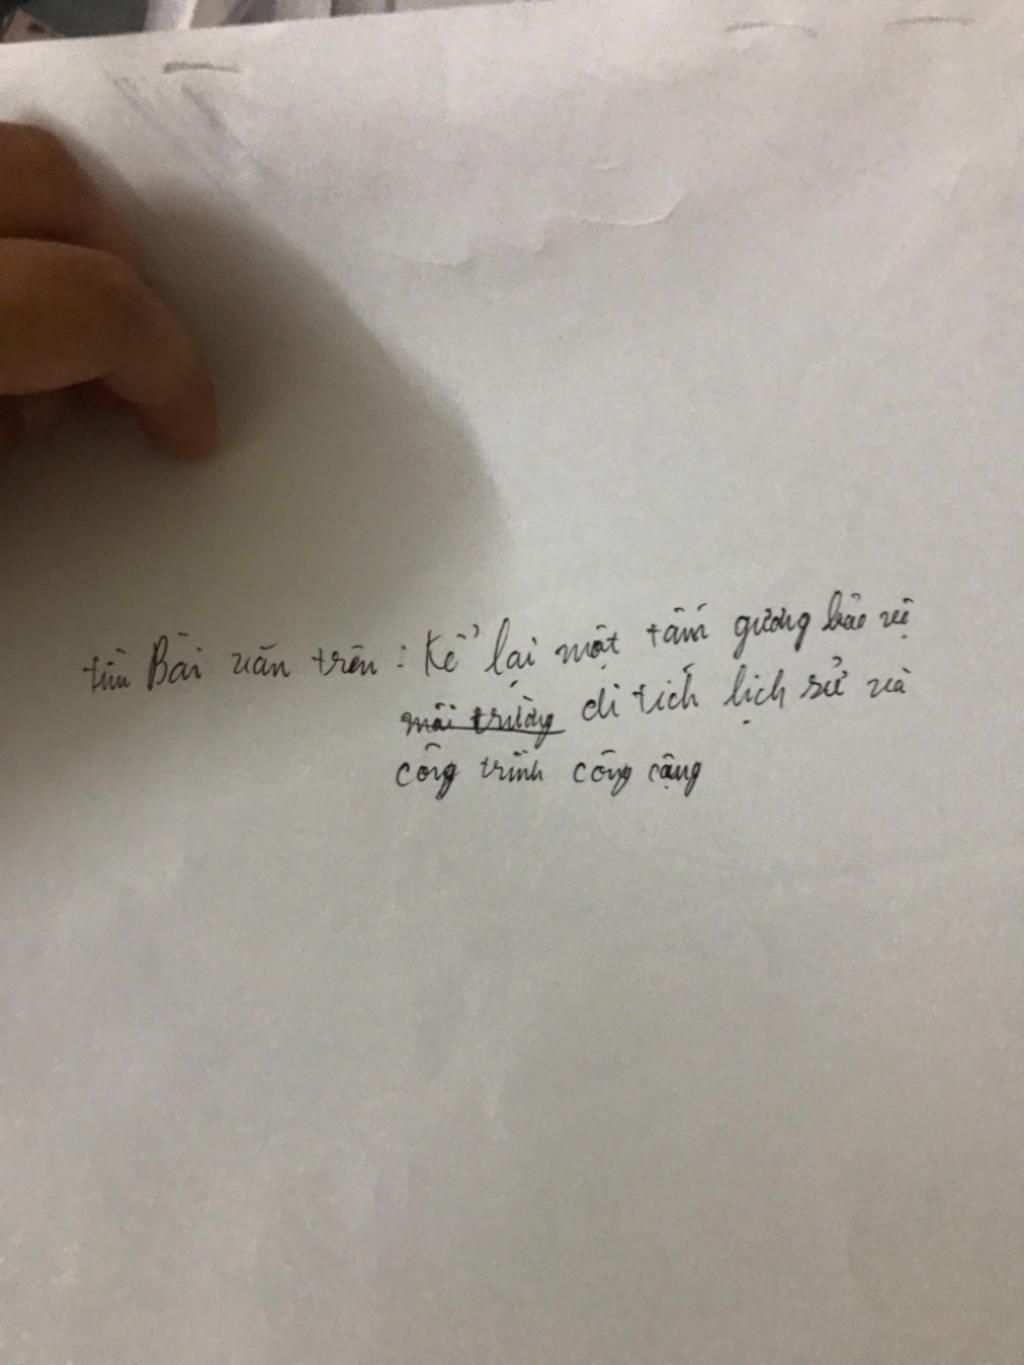 tìm Bài văn trên : Kể lại một tấm gương bảo vệ
môi trường di tích lịch sử và
công trình công cộng